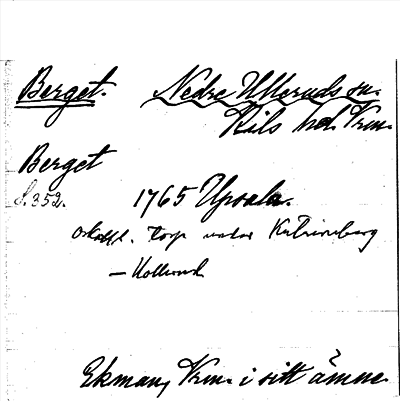 Berget. Nedre Ulleruds sn.
Kils hd. Vrm.
Berget
S. 352. 1765 Upsala.
torp under Katrineberg
Ekman, Vrm. i sitt ämne.